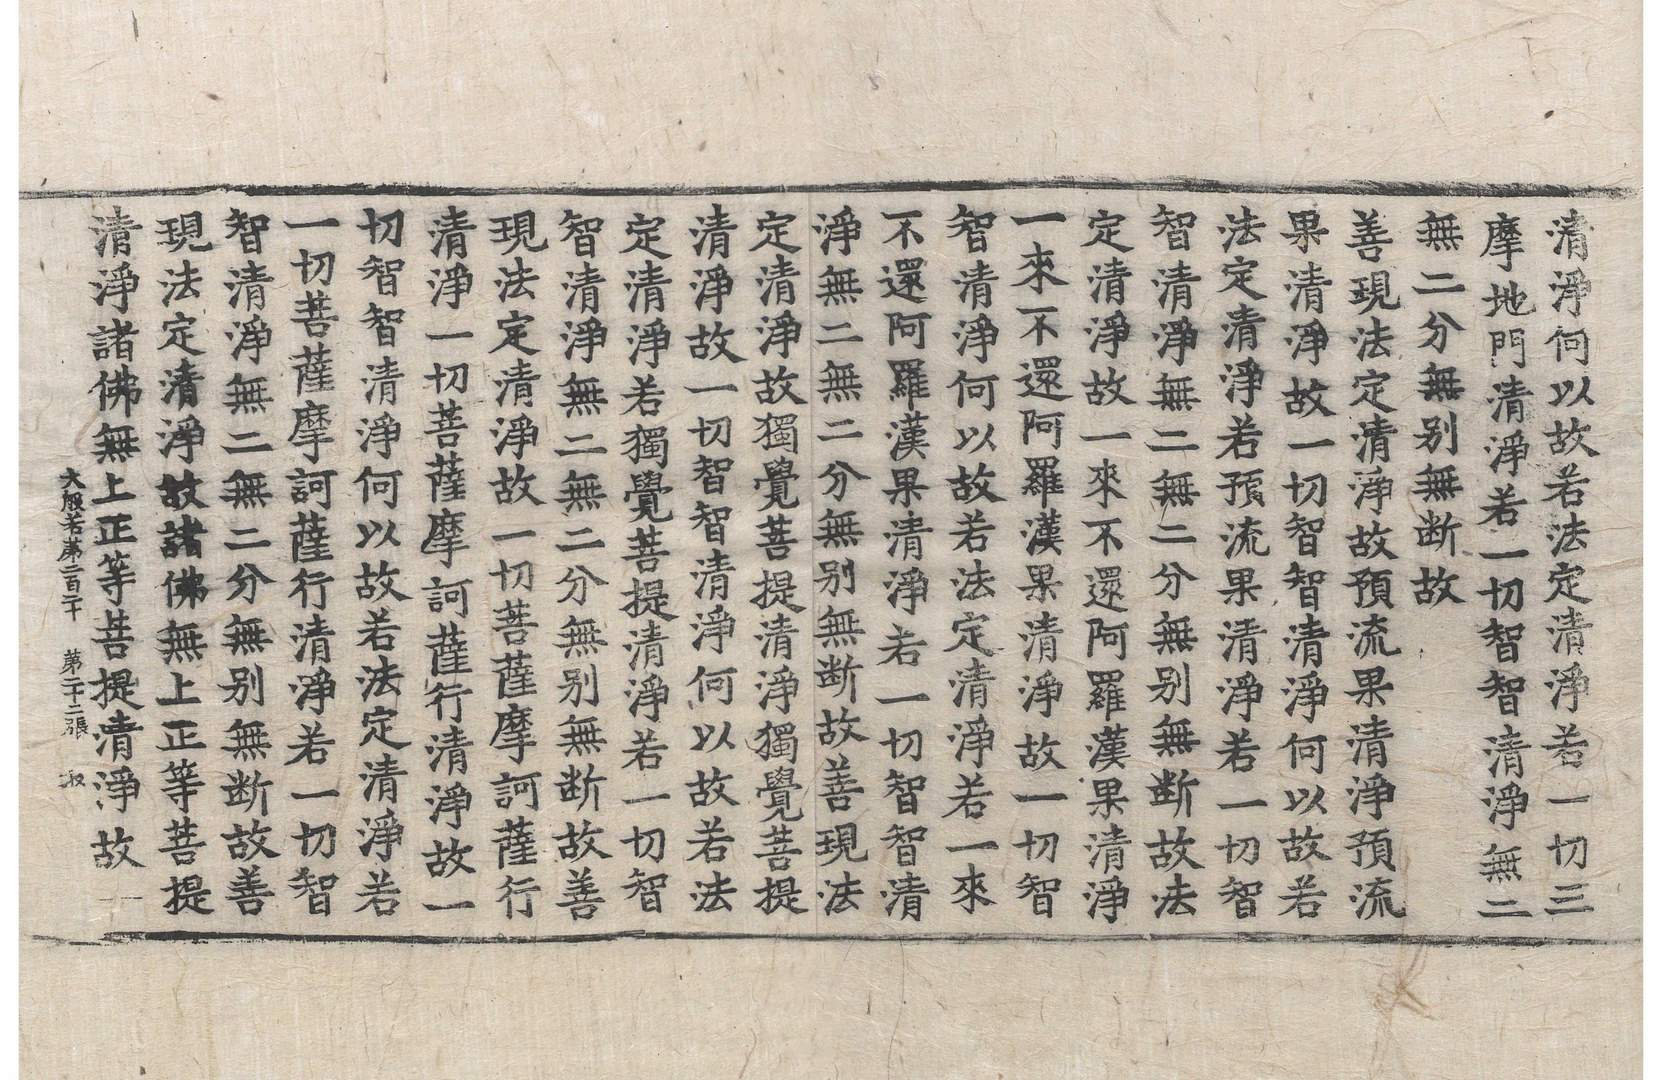 清淨何以故若法定清淨若一切三
摩地門清淨若一切智智清淨無二
無二分無別無断故
善現法定清淨故預流果清淨預流
果清淨故一切智智清淨何以故若
法定清淨若預流果清淨若一切智
智清淨無二無二分無別無断故法
定清淨故一來不還阿羅漢果清淨
一來不還阿羅漢果清淨故一切智
智清淨何以故若法定清淨若一來
不還阿羅漢果清淨若一切智智清
淨無二無二分無別無断故善現法
定清淨故獨覺菩提清淨獨覺菩提
清淨故一切智智清淨何以故若法
定清淨若獨覺菩提清淨若一切智
智清淨無二無二分無別無断故善
現法定清淨故一切菩薩摩訶薩行
清淨一切菩薩摩訶薩行清淨故一
切智智清淨何以故若法定清淨若
一切菩薩摩訶薩行清淨若一切智
智清淨無二無二分無別無断故善
現法定清淨故諸佛無上正等菩提
清淨諸佛無上正等菩提清淨故
大般若第二百二十 第二十二張 淑